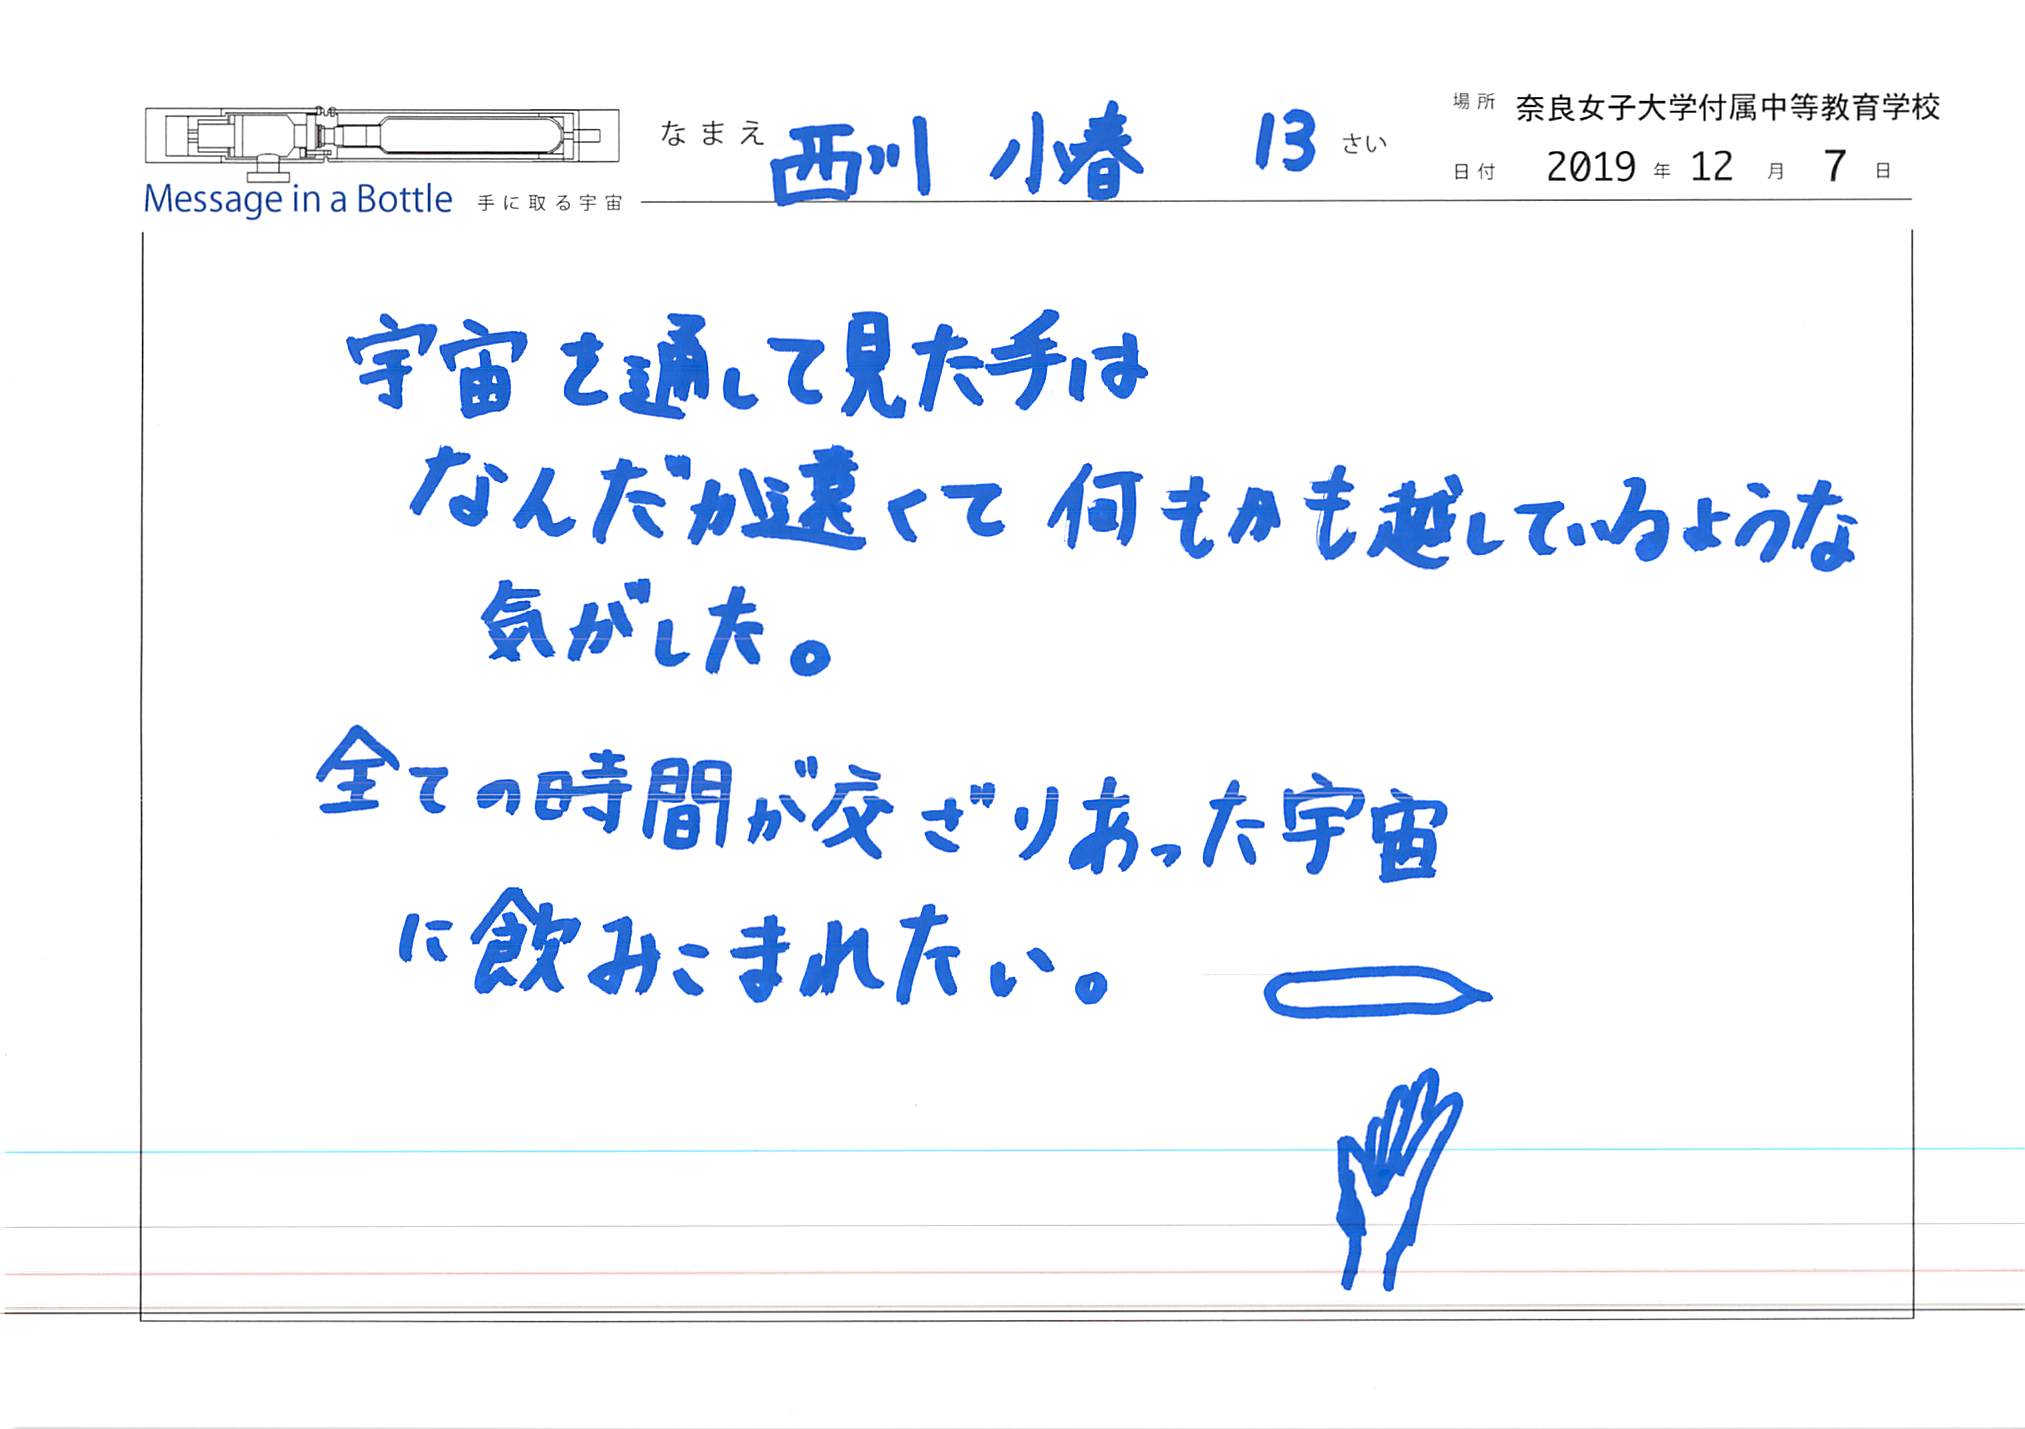 なまえ 西川 小春 13 さい
場所 奈良女子大学付属中等教育学校
日付 2019 年 12 月 7 日
Message in a Bottle 手に取る宇宙
宇宙を通して見た手は
なんだか遠くて 何もかも越しているような
気がした。
全ての時間が交ざりあった宇宙
に飲みこまれたい。